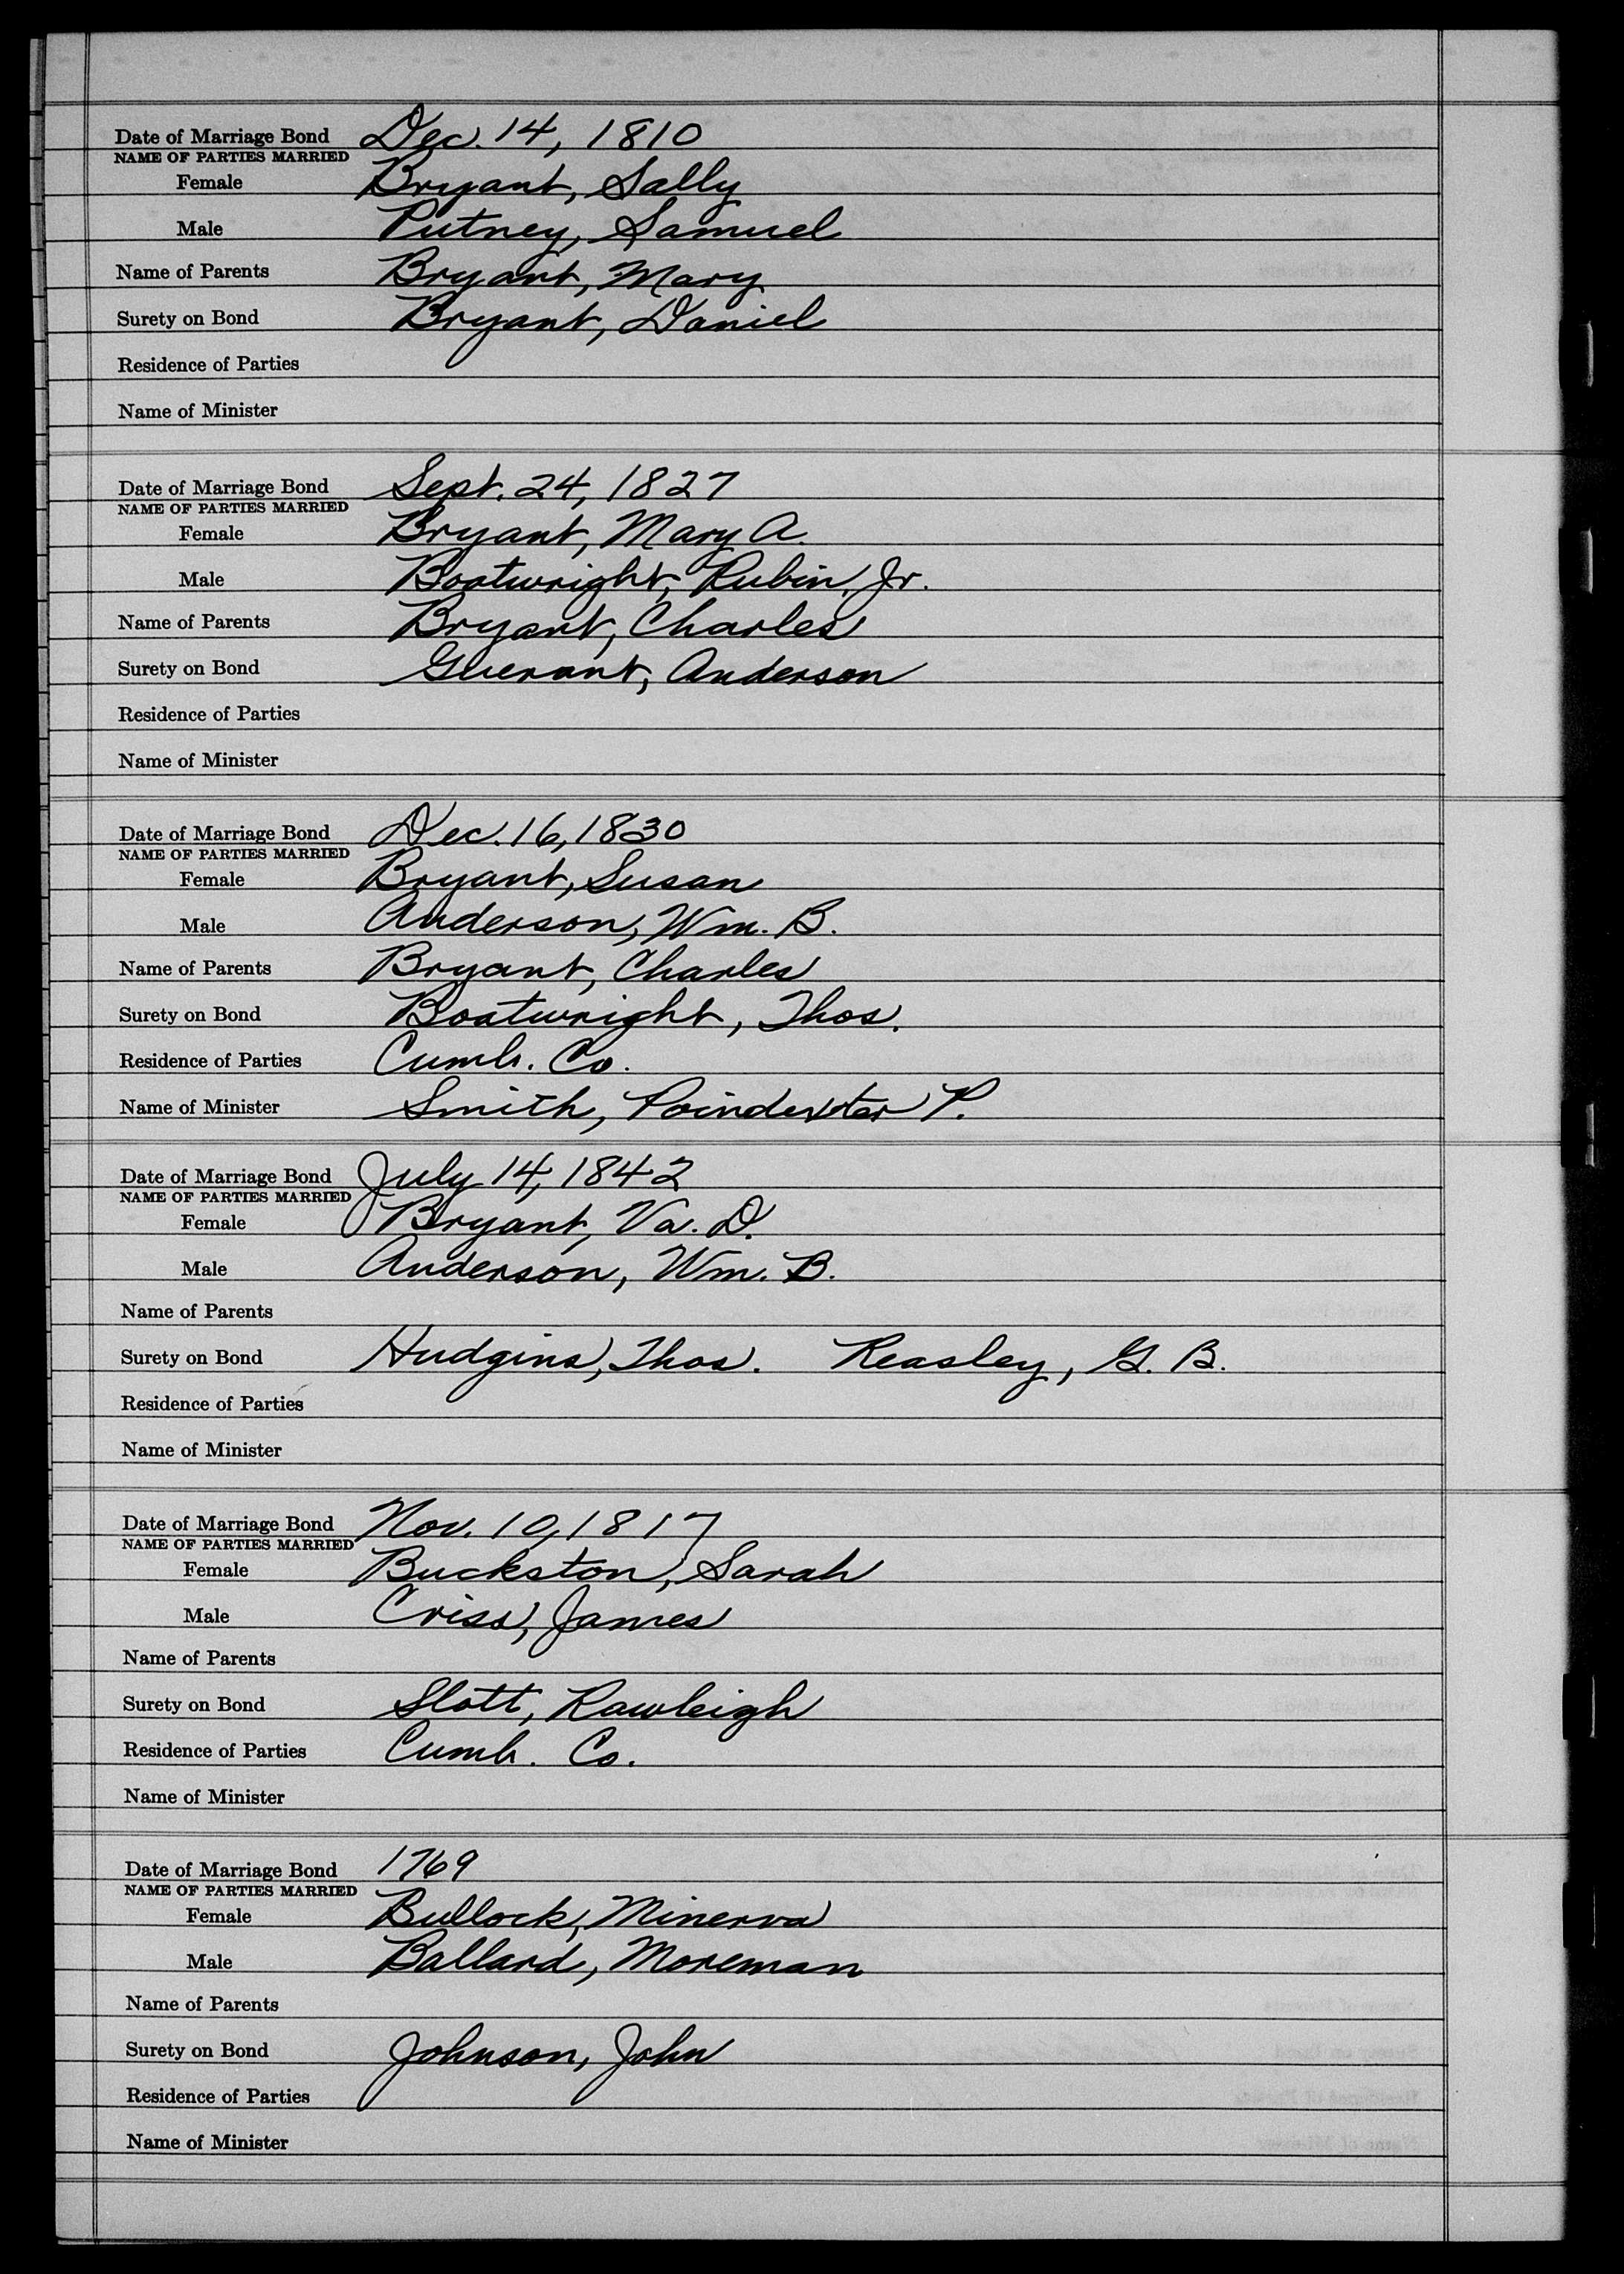 Date of Marriage Bond Dec. 14, 1810
NAME OF PARTIES MARRIED
Female Bryant, Sally
Male Putney, Samuel
Name of Parents Bryant, Mary
Surety on Bond Bryant, Daniel
Residence of Parties
Name of Minister
Date of Marriage Bond Sept. 24, 1827
NAME OF PARTIES MARRIED
Female Bryant, Mary A.
Male Boatwright, Rubin, Jr.
Name of Parents Bryant, Charles
Surety on Bond Guerant, Anderson
Residence of Parties
Name of Minister
Date of Marriage Bond Dec. 16, 1830
NAME OF PARTIES MARRIED
Female Bryant, Susan
Male Anderson, Wm. B.
Name of Parents Bryant, Charles
Surety on Bond Boatwright, Thos.
Residence of Parties Cumb. Co.
Name of Minister Smith, Poindexter P.
Date of Marriage Bond July 14, 1842
NAME OF PARTIES MARRIED
Female Bryant, Va. D.
Male Anderson, Wm. B.
Name of Parents
Surety on Bond Hudgins, Thos. Keasley, G. B.
Residence of Parties
Name of Minister
Date of Marriage Bond Nov. 10, 1817
NAME OF PARTIES MARRIED
Female Buckston, Sarah
Male Criss, James
Name of Parents
Surety on Bond Slott, Rawleigh
Residence of Parties Cumb. Co.
Name of Minister
Date of Marriage Bond 1769
NAME OF PARTIES MARRIED
Female Bullock, Minerva
Male Ballard, Moreman
Name of Parents
Surety on Bond Johnson, John
Residence of Parties
Name of Minister